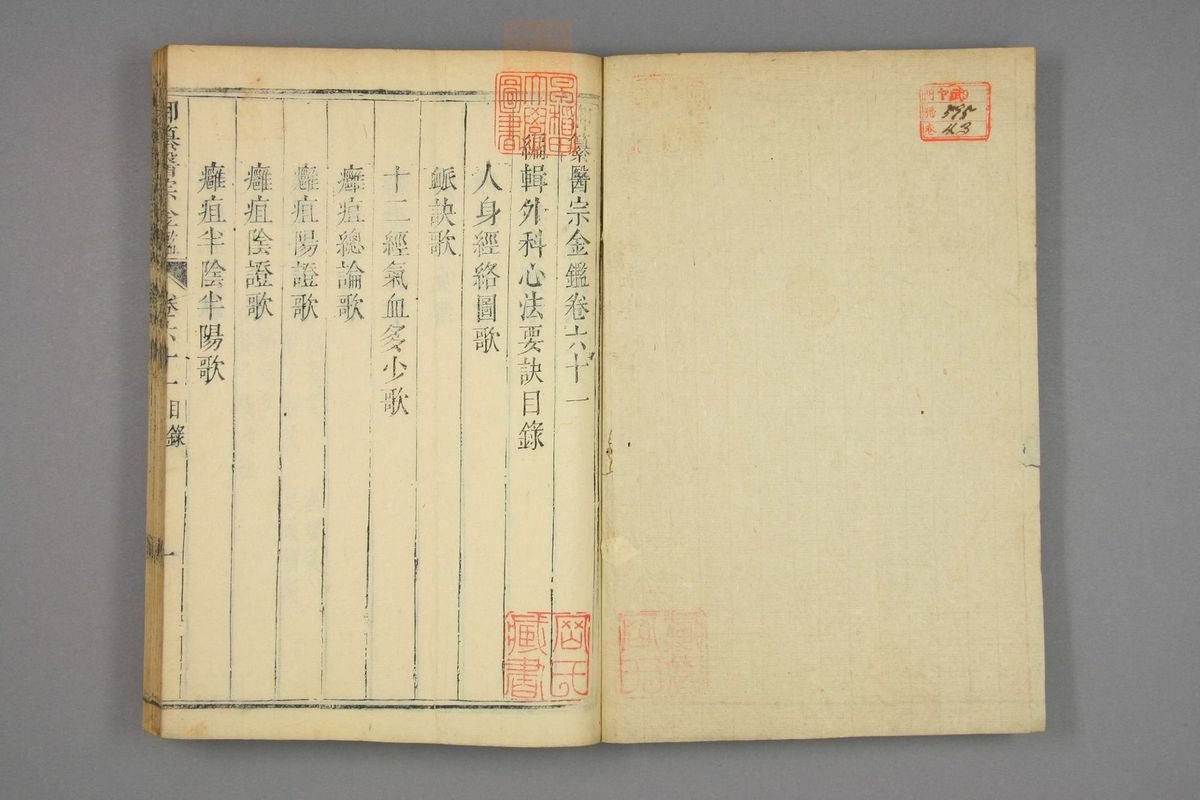 御纂醫宗金鑑卷六十一
編輯外科心法要訣目錄
人身經絡圖歌
䘑訣歌
十二經氣血多少歌
癰疽總論歌
癰疽陽證歌
癰疽陰證歌
癰疽半陰半陽歌
御纂醫宗金鑑
卷六十一
目錄
一
早稻田
大學
圖書
藏書
595
43